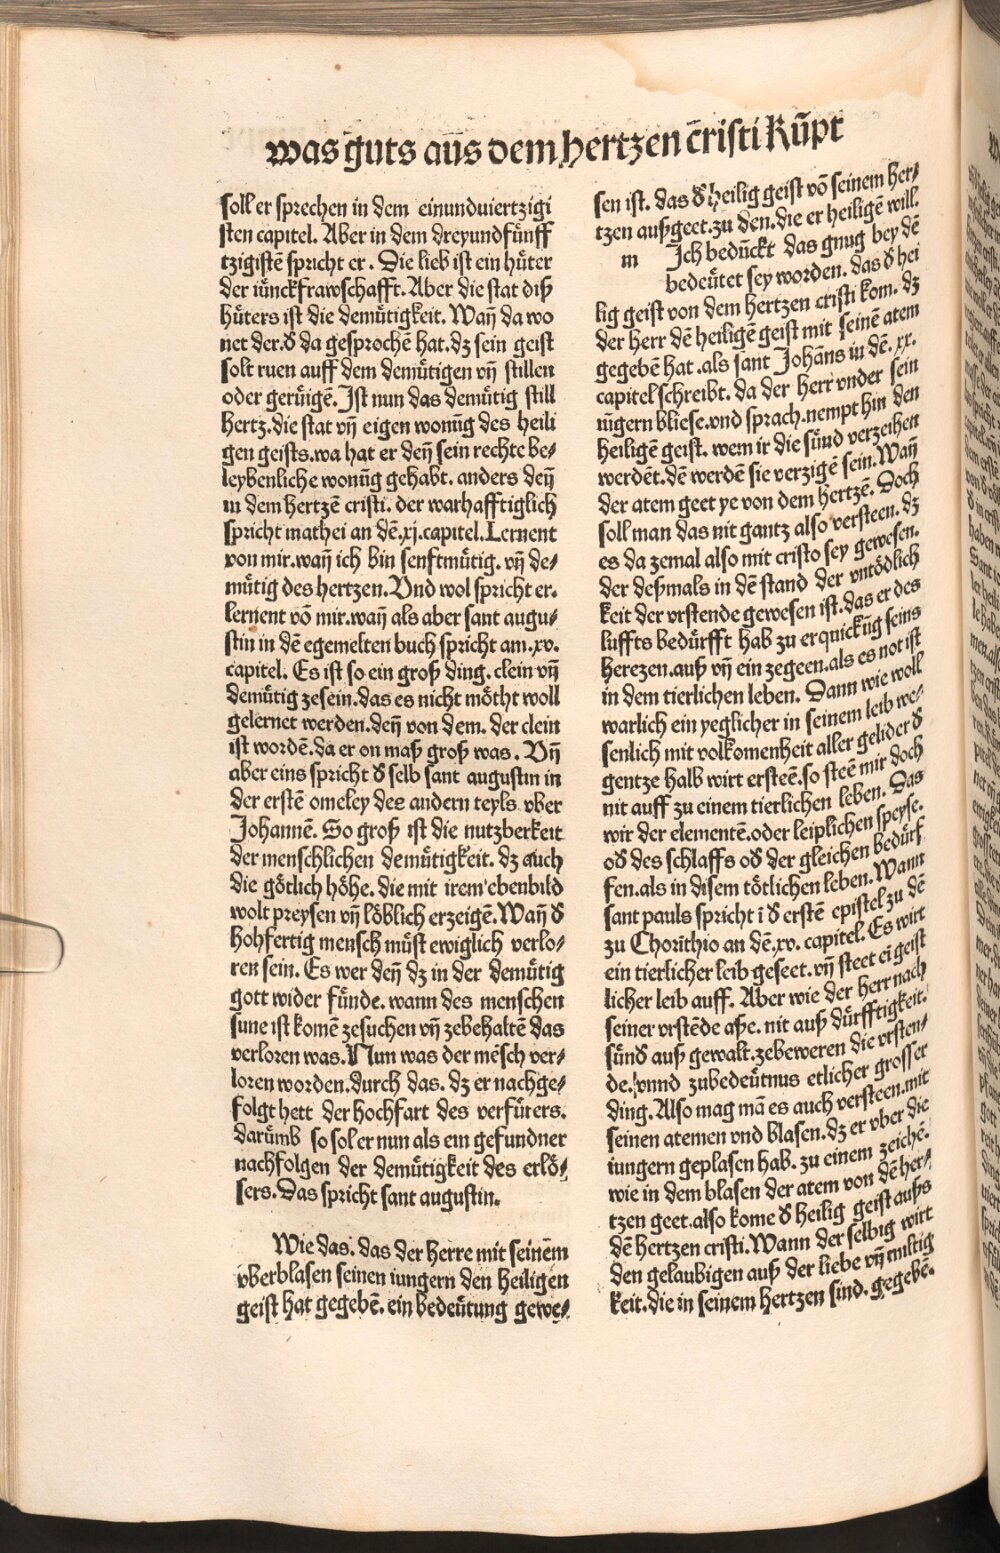 was guts aus dem hertzen cristi kupt
soll er sprechen in dem einunduiertzigi
sten capitel. Aber in dem dreyundfünff
tzigistē spricht er. Die lieb ist ein hüter
der iünckfrawschafft. Aber die stat diß
hüters ist die demütigkeit. Wañ da wo
net der. d̄ da gesprochē hat. dz sein geist
solt ruen auff dem demütigen vñ stillen
oder gerüigē. Ist nun das demütig still
hertz. die stat vñ eigen wonūg des heili
gen geists. wa hat er deñ sein rechte be⸗
leybenliche wonūg gehabt. anders deñ
in dem hertzē cristi. der warhafftiglich
spricht mathei an dē .xj. capitel. Lernent
von mir. wañ ich bin senftmütig. vñ de⸗
mütig des hertzen. Vnd wol spricht er.
lernent vō mir. wañ als aber sant augu⸗
stin in dē egemelten buch spricht am .xv.
capitel. Es ist so ein groß ding. clein vñ
demütig zesein. das es nicht möcht woll
gelernet werden. deñ von dem. der clein
ist wordē. da er on maß groß was. Vñ
aber eins spricht d̄ selb sant augustin in
der erstē omeley des andern teyls vber
Johannē. So groß ist die nutzberkeit
der menschlichen demütigkeit. dz auch
die götlich höhe. die mit irem ebenbild
wolt preysen vñ löblich erzeigē. Wañ d̄
hohfertig mensch müst ewiglich verlo⸗
ren sein. Es wer deñ dz in der demütig
gott wider fünde. wann des menschen
sune ist komē zesuchen vñ zebehaltē das
verloren was. Nun was der mēsch ver⸗
loren worden. durch das. dz er nachge⸗
folgt hett der hochfart des verfürers.
darumb so sol er nun als ein gefundner
nachfolgen der demütigkeit des erlö⸗
sers. Das spricht sant augustin.
Wie das. das der herre mit seinem
vberblasen seinen iungern den heiligen
geist hat gegebē. ein bedeütung gewe⸗
sen ist. das d̄ heilig geist vō seinem her⸗
tzen außgeet. zu den. die er heiligē will.
m Ich bedückt das gnug bey dē
bedeütet sey worden. das d̄ hei
lig geist von dem hertzen cristi kom. dz
der herr dē heiligē geist mit seinē atem
gegebē hat. als sant Johāns in dē .xx.
capitel schreibt. da der herr vnder sein
iūgern bliese. vnd sprach. nempt hin den
heiligē geist. wem ir die sünd verzeihen
werdēt. dē werdē sie verzigē sein. Wañ
der atem geet ye von dem hertzē. Doch
soll man das nit gantz also versteen. dz
es da zemal also mit cristo sey gewesen.
der deßmals in dē stand der vntödlich
keit der vrstende gewesen ist. das er des
luffts bedürfft hab zu erquickūg seins
herezen. auß vñ ein zegeen. als es not ist
in dem tierlichen leben. Dann wie woll
warlich ein yeglicher in seinem leib we⸗
senlich mit volkomenheit aller gelider d̄
gentze halb wirt ersteē. so steē mir doch
nit auff zu einem tierlichen leben. Das
wir der elementē. oder leiplichen speyse.
od̄ des schlaffs od̄ der gleichen bedürf
fen. als in disem tötlichen leben. Wann
sant pauls spricht ī d̄ erstē epistel zu dē
zu Chorithio an dē .xv. capitel. Es wirt
ein tierlicher leib geseet. vñ steet eī geist
licher leib auff. Aber wie der herr nach
seiner vrstēde aße. nit auß dürfftigkeit.
sünd auß gewalt. zebeweren die vrsten⸗
de. vnnd zubedeütnus etlicher grosser
ding. Also mag mā es auch versteen. mit
seinen atemen vnd blasen. dz er vber die
iungern geplasen hab. zu einem zeichē.
wie in dem blasen der atem von dē her⸗
tzen geet. also kome d̄ heilig geist außs
dē hertzen cristi. Wann der selbig wirt
den gelaubigen auß der liebe vñ miltig
keit. die in seinem hertzen sind. gegebē.